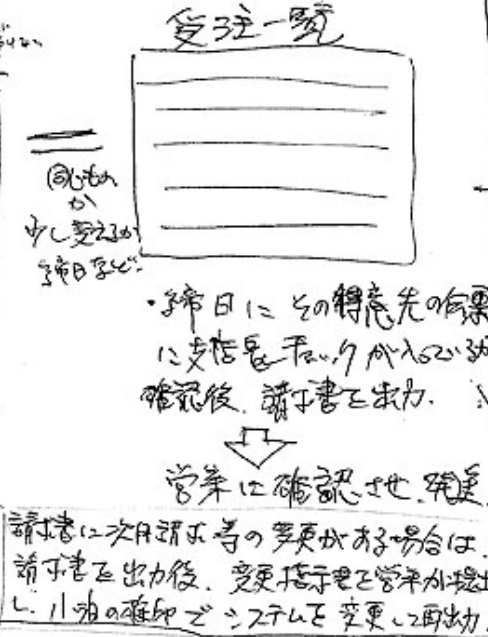 受注一覧
同じもの
か
少し変えるか
締日など
・締日に その得意先の伝票
に支店長チェックが入っているか
確認後、請求書を出力.
営業に確認させ、発送
請求書に次月請求等の変更がある場合は、
請求書を出力後、変更指示書を営業が提出
し、小泊の確印でシステムを変更して再出力